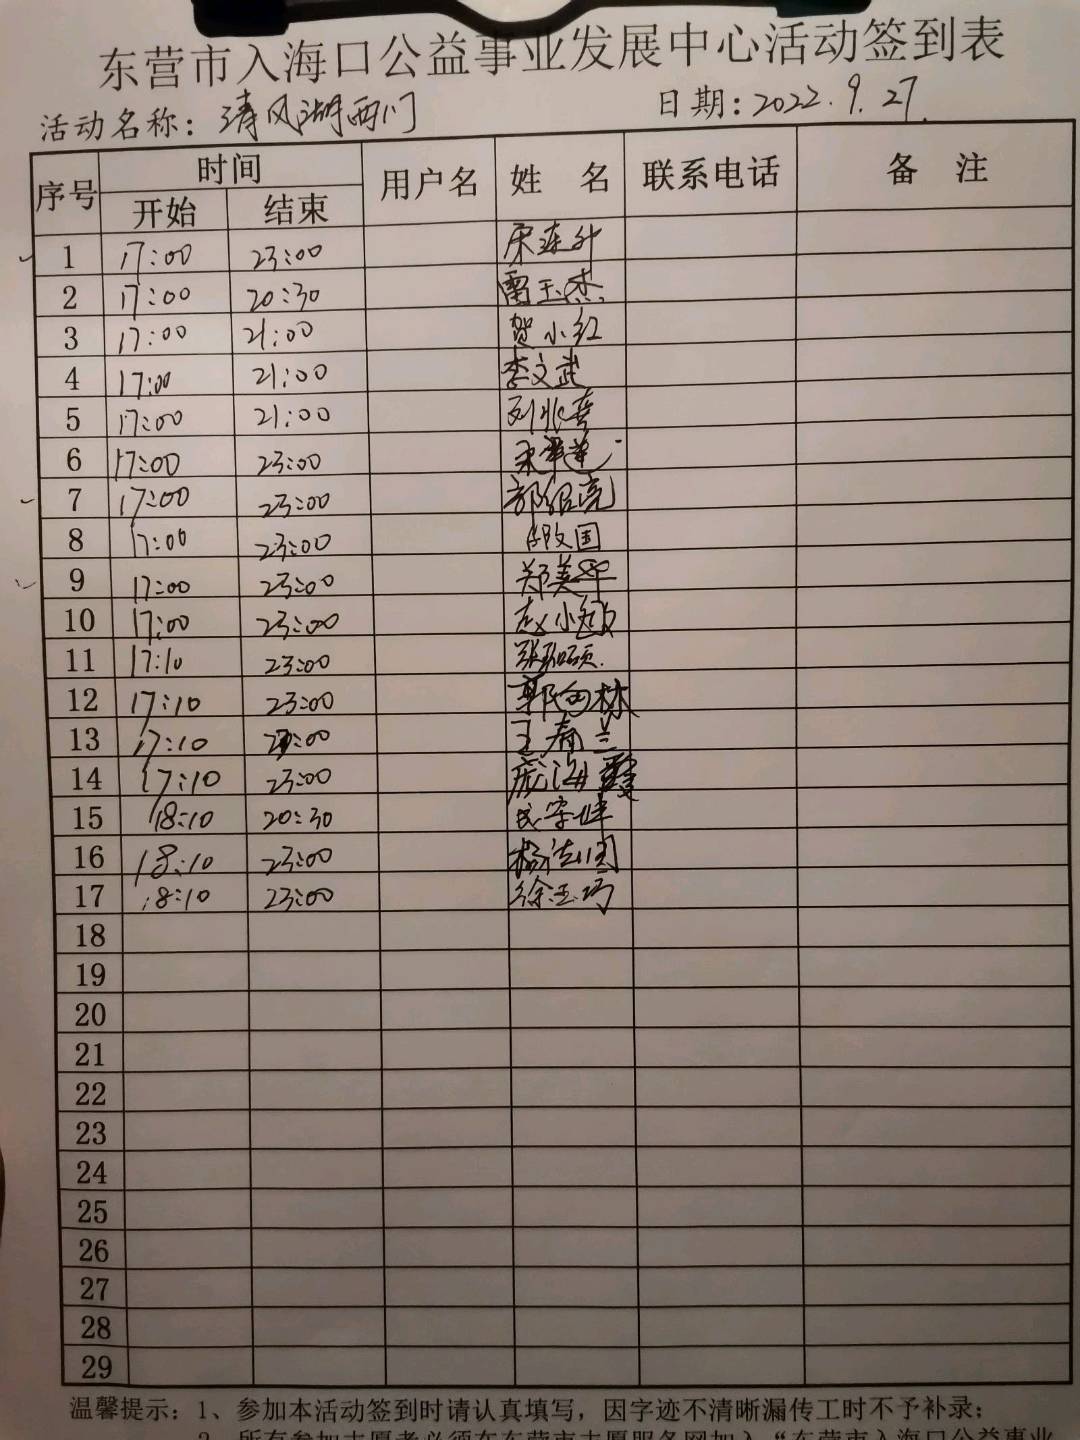 东营市入海口公益事业发展中心活动签到表
活动名称：清风湖西门 日期：2022.9.27.
序号 时间 用户名 姓 名 联系电话 备 注
开始 结束
1 17:00 23:00 宋连升
2 17:00 20:30 雷玉杰
3 17:00 21:00 贺小红
4 17:00 21:00 李文武
5 17:00 21:00 刘兆喜
6 17:00 23:00
7 17:00 23:00 郭绍亮
8 17:00 23:00
9 17:00 23:00 郑美华
10 17:00 23:00 赵小敏
11 17:10 23:00
12 17:10 23:00 郭向林
13 17:10 :00 王春兰
14 17:10 23:00 庞海
15 18:10 20:30
16 18:10 23:00 杨
17 18:10 23:00 徐玉巧
18
19
20
21
22
23
24
25
26
27
28
29
温馨提示：1、参加本活动签到时请认真填写，因字迹不清晰漏传工时不予补录；
2、所有参加志愿者必须在东营市志愿服务网加入“东营市入海口公益事业